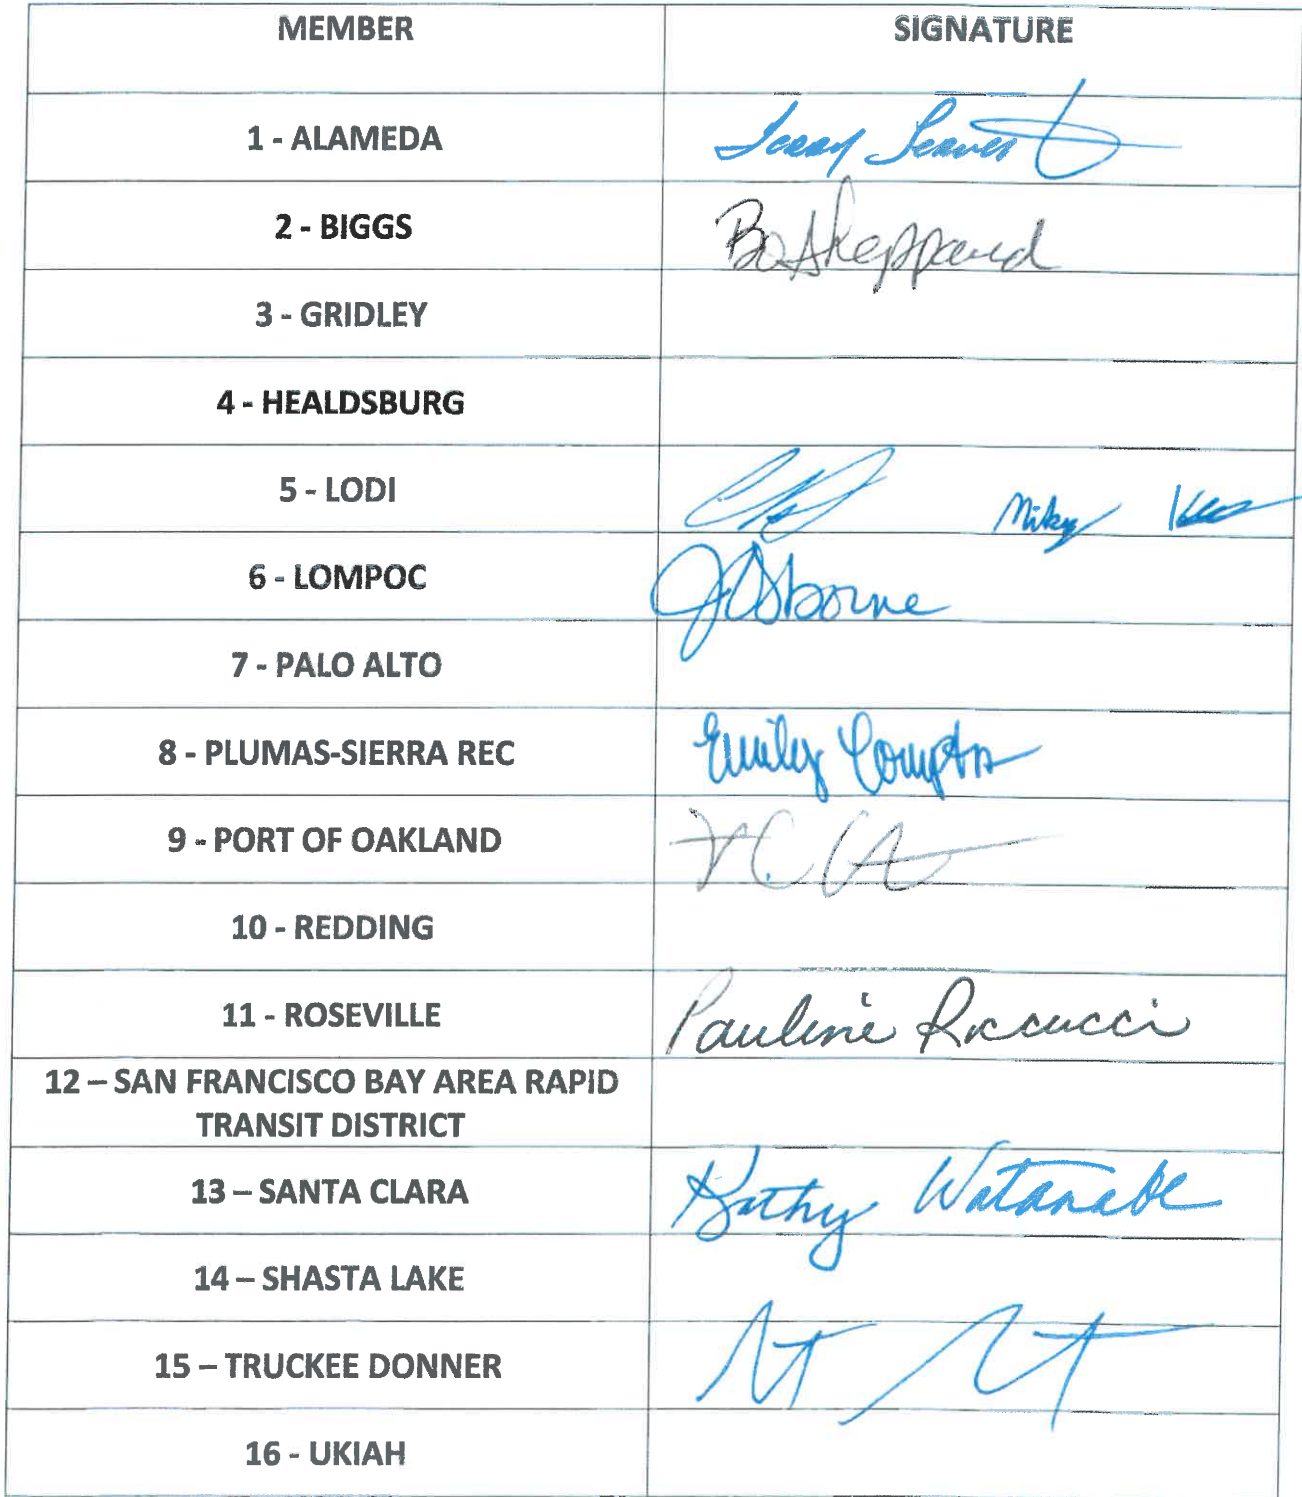 MEMBER SIGNATURE
1 - ALAMEDA
2 - BIGGS Bo Sheppard
3 - GRIDLEY
4 - HEALDSBURG
5 - LODI Mikey
6 - LOMPOC JOsborne
7 - PALO ALTO
8 - PLUMAS-SIERRA REC Emily Compton
9 - PORT OF OAKLAND
10 - REDDING
11 - ROSEVILLE Pauline Roccucci
12 – SAN FRANCISCO BAY AREA RAPID
TRANSIT DISTRICT
13 – SANTA CLARA Kathy Watanabe
14 – SHASTA LAKE
15 – TRUCKEE DONNER
16 - UKIAH